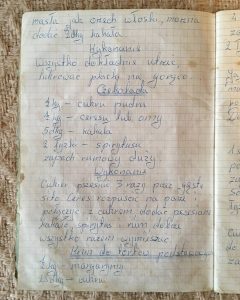 masła jak orzech włoski, można
dodać 2dkg kakala
Wykonanie
Wszystko dokładnie utrzeć,
lukrować placki na gorąco.
Czekolada
1 kg – cukru pudru
1/2 kg – ceresu lub
50dkg – kakala
2 łyżki – spirytusu
zapach rumowy duży
Wykonanie
Cukier przesiać 3 razy przez gęste
sito Ceres rozpuścić na parze
połączyć z cukrem dodać przesiane
kakao, spirytus i rum dobrze
wszystko razem wymieszać.
Krem do tortów podstawowy
margaryny
cukru